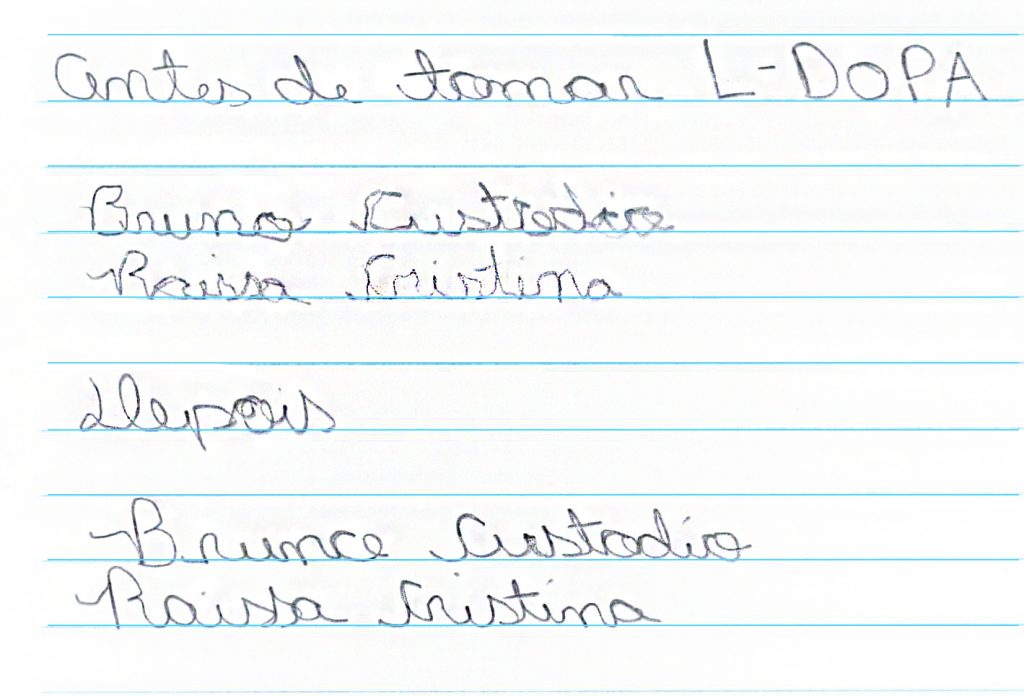 Antes de tomar L-DOPA
Bruno Custodio
Raissa Cristina
Depois
Bruno Custodio
Raissa Cristina